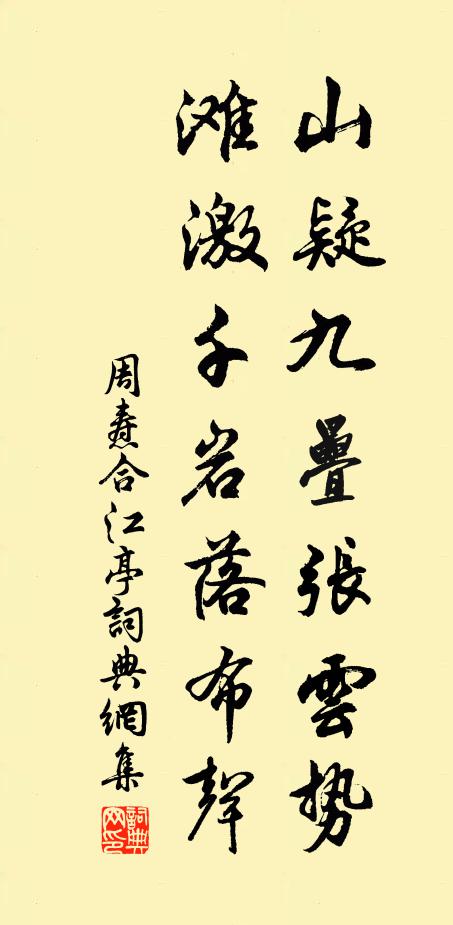 山疑九疊張雲势
滩激千岩落布聲
周燾合江亭詞典網集
詞典网印